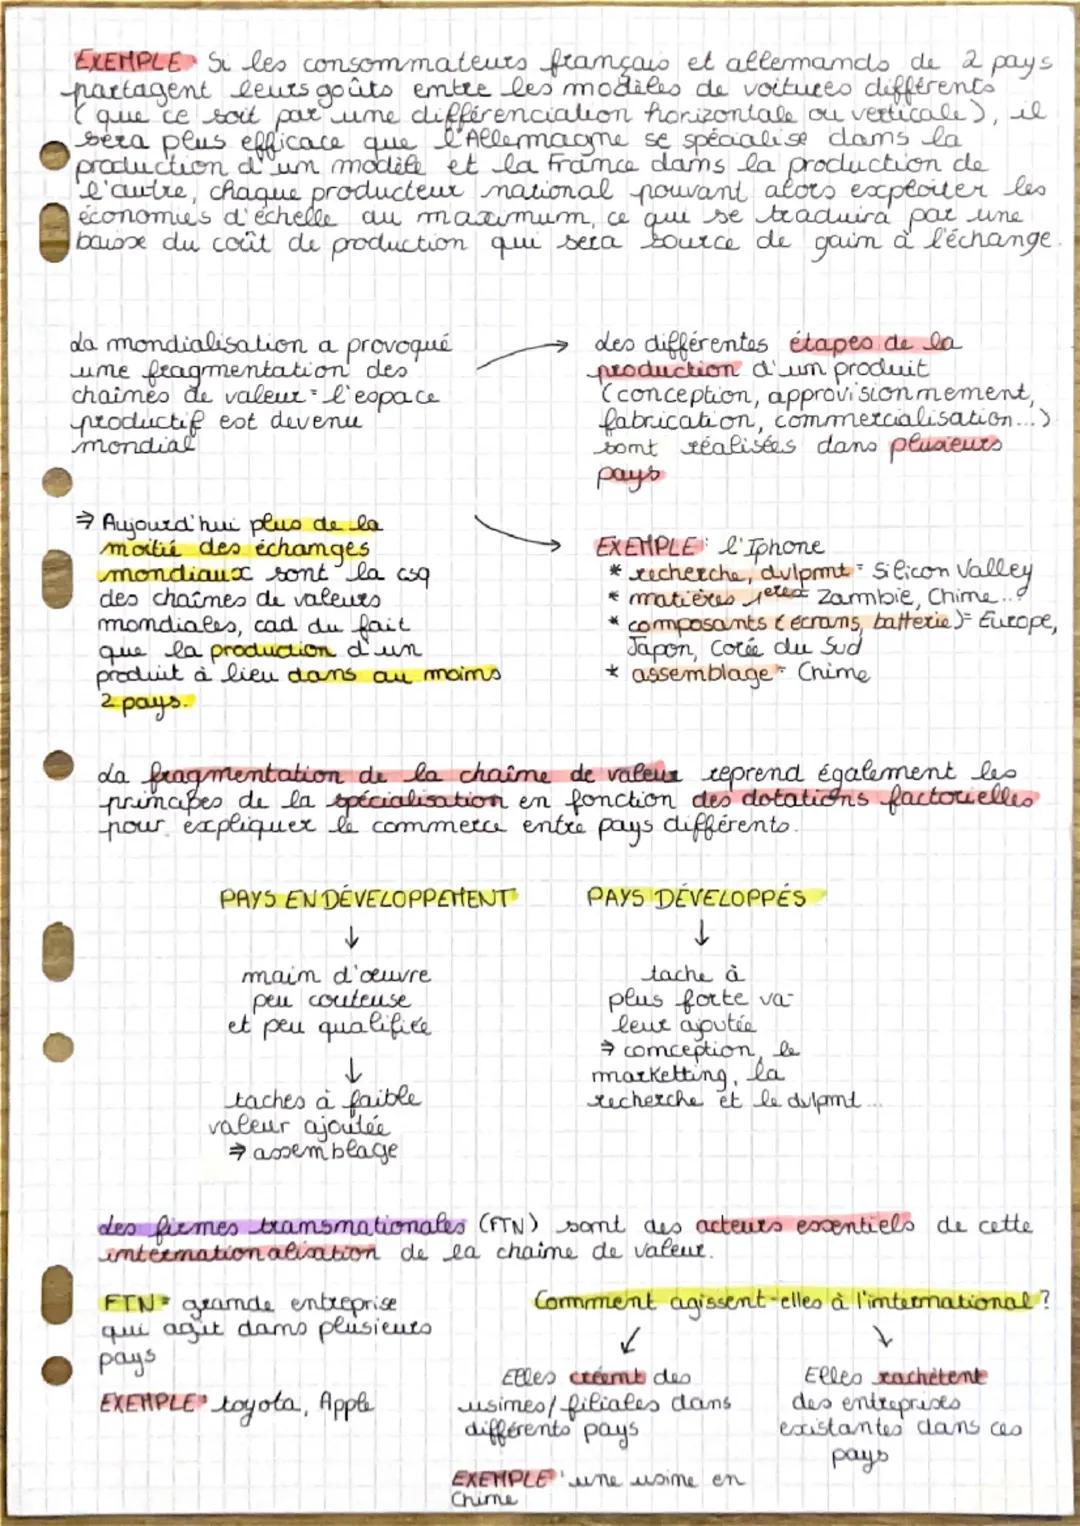 EXEMPLE Si les consommateurs français et allemands de 2 pays
partagent leurs goûts entre les modèles de voitures différents
(que ce soit par une différenciation horizontale ou verticale), il
sera plus efficace que l'Allemagne se spécialise dans la
production d'un modèle et la France dans la production de
l'autre, chaque producteur national pouvant alors exploiter les
économies d'échelle au maximum, ce qui se traduira par une
baisse du coût de production qui sera source de gain à l'échange.
La mondialisation a provoqué
une fragmentation des
chaînes de valeur = l'espace
productif est devenu
mondial
des différentes étapes de la
production d'un produit
(conception, approvisionnement,
fabrication, commercialisation...)
sont réalisées dans plusieurs
pays
⇒ Aujourd'hui plus de la
moitié des échanges
mondiaux sont la csq
des chaînes de valeurs
mondiales, cad du fait
que la production d'un
produit à lieu dans au moins
2 pays.
EXEMPLE : l'Iphone
* recherche, dvlpmt = Silicon Valley
* matières 1ères = Zambie, Chine...
* composants (écrans, batterie) = Europe,
Japon, Corée du Sud
* assemblage = Chine
La fragmentation de la chaîne de valeur reprend également les
principes de la spécialisation en fonction des dotations factorielles
pour expliquer le commerce entre pays différents.
PAYS EN DÉVELOPPEMENT
↓
main d'œuvre
peu couteuse
et peu qualifiée
↓
taches à faible
valeur ajoutée
⇒ assemblage
PAYS DÉVELOPPÉS
↓
tache à
plus forte va-
leur ajoutée
⇒ conception, le
marketting, la
recherche et le dvlpmt...
Les firmes transnationales (FTN) sont des acteurs essentiels de cette
internationalisation de la chaîne de valeur.
FTN = grande entreprise
qui agit dans plusieurs
pays
EXEMPLE : toyota, Apple
Comment agissent-elles à l'international ?
Elles créent des
usines/filiales dans
différents pays
EXEMPLE : une usine en
Chine
Elles rachètent
des entreprises
existantes dans ces
pays